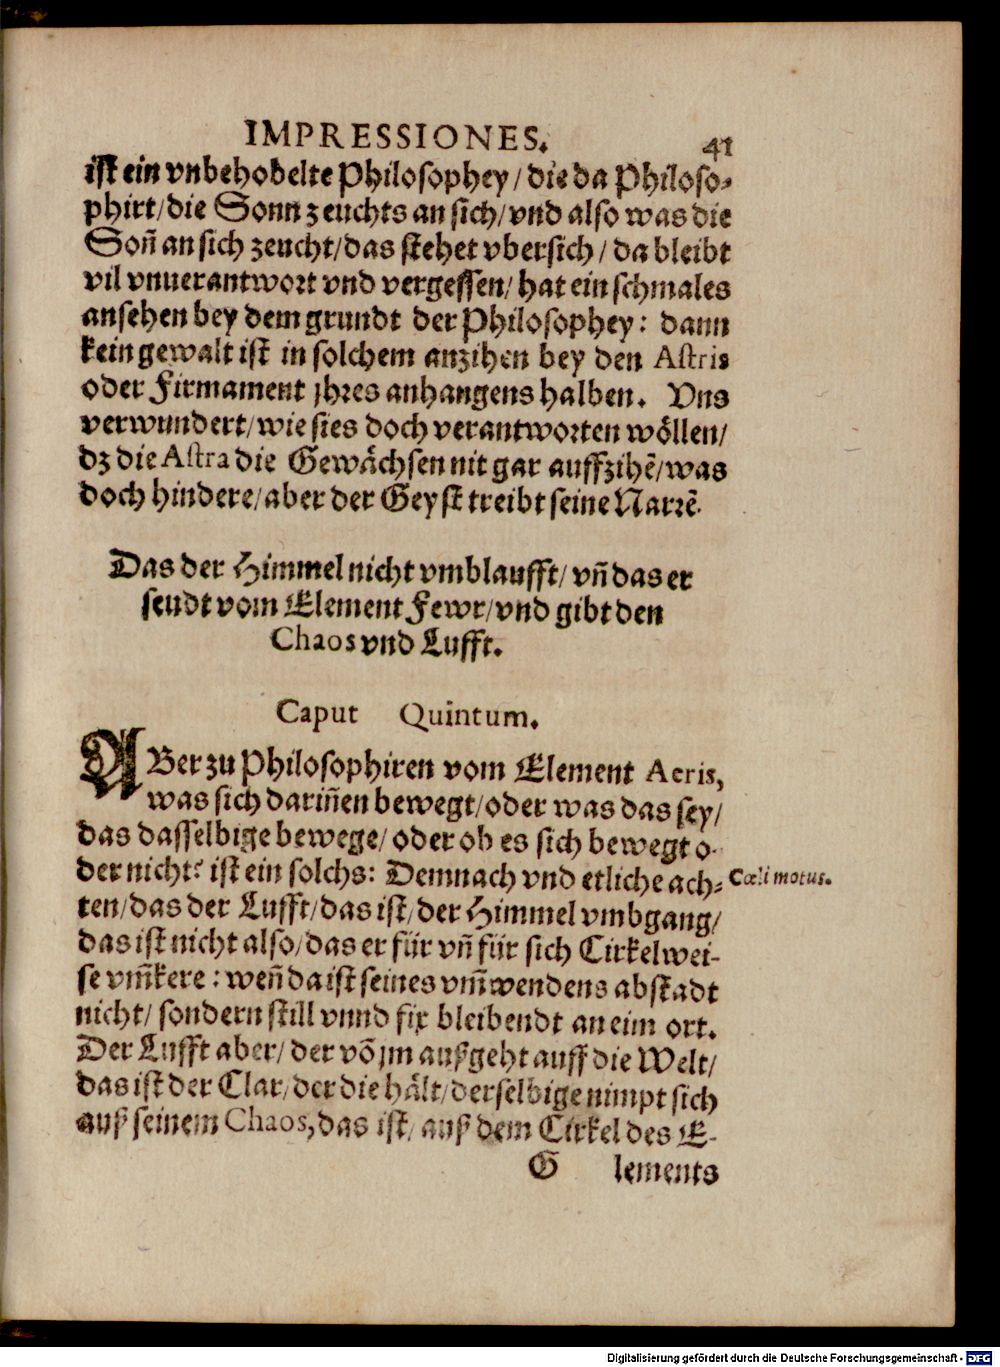 IMPRESSIONES. 41
ist ein vnbehobelte Philosophey / die da Philoso-
phirt / die Sonn zeuchts an sich / vnd also was die
Soñ an sich zeucht / das stehet vbersich / da bleibt
vil vnuerantwort vnd vergessen / hat ein schmales
ansehen bey dem grundt der Philosophey: dann
kein gewalt ist in solchem anzihen bey den Astris
oder Firmament jhres anhangens halben. Vns
verwundert / wie sies doch verantworten wöllen /
dz die Astra die Gewächsen nit gar auffzihē / was
doch hindere / aber der Geyst treibt seine Narrē.
Das der Himmel nicht vmblaufft / vñ das er
seudt vom Element Fewr / vnd gibt den
Chaos vnd Lufft.
Caput Quintum.
ABer zu Philosophiren vom Element Aeris,
was sich dariñen bewegt / oder was das sey /
das dasselbige bewege / oder ob es sich bewegt o-
der nicht? ist ein solchs: Demnach vnd etliche ach- Cœli motus.
ten / das der Lufft / das ist / der Himmel vmbgang /
das ist nicht also / das er für vñ für sich Cirkelwei-
se vm̃kere: weñ da ist seines vm̃wendens abstadt
nicht / sondern still vnnd fix bleibendt an eim ort.
Der Lufft aber / der võ jm außgeht auff die Welt /
das ist der Clar / der die hält / derselbige nimpt sich
auß seinem Chaos, das ist / auß dem Cirkel des E-
G lements
Digitalisierung gefördert durch die Deutsche Forschungsgemeinschaft - DFG